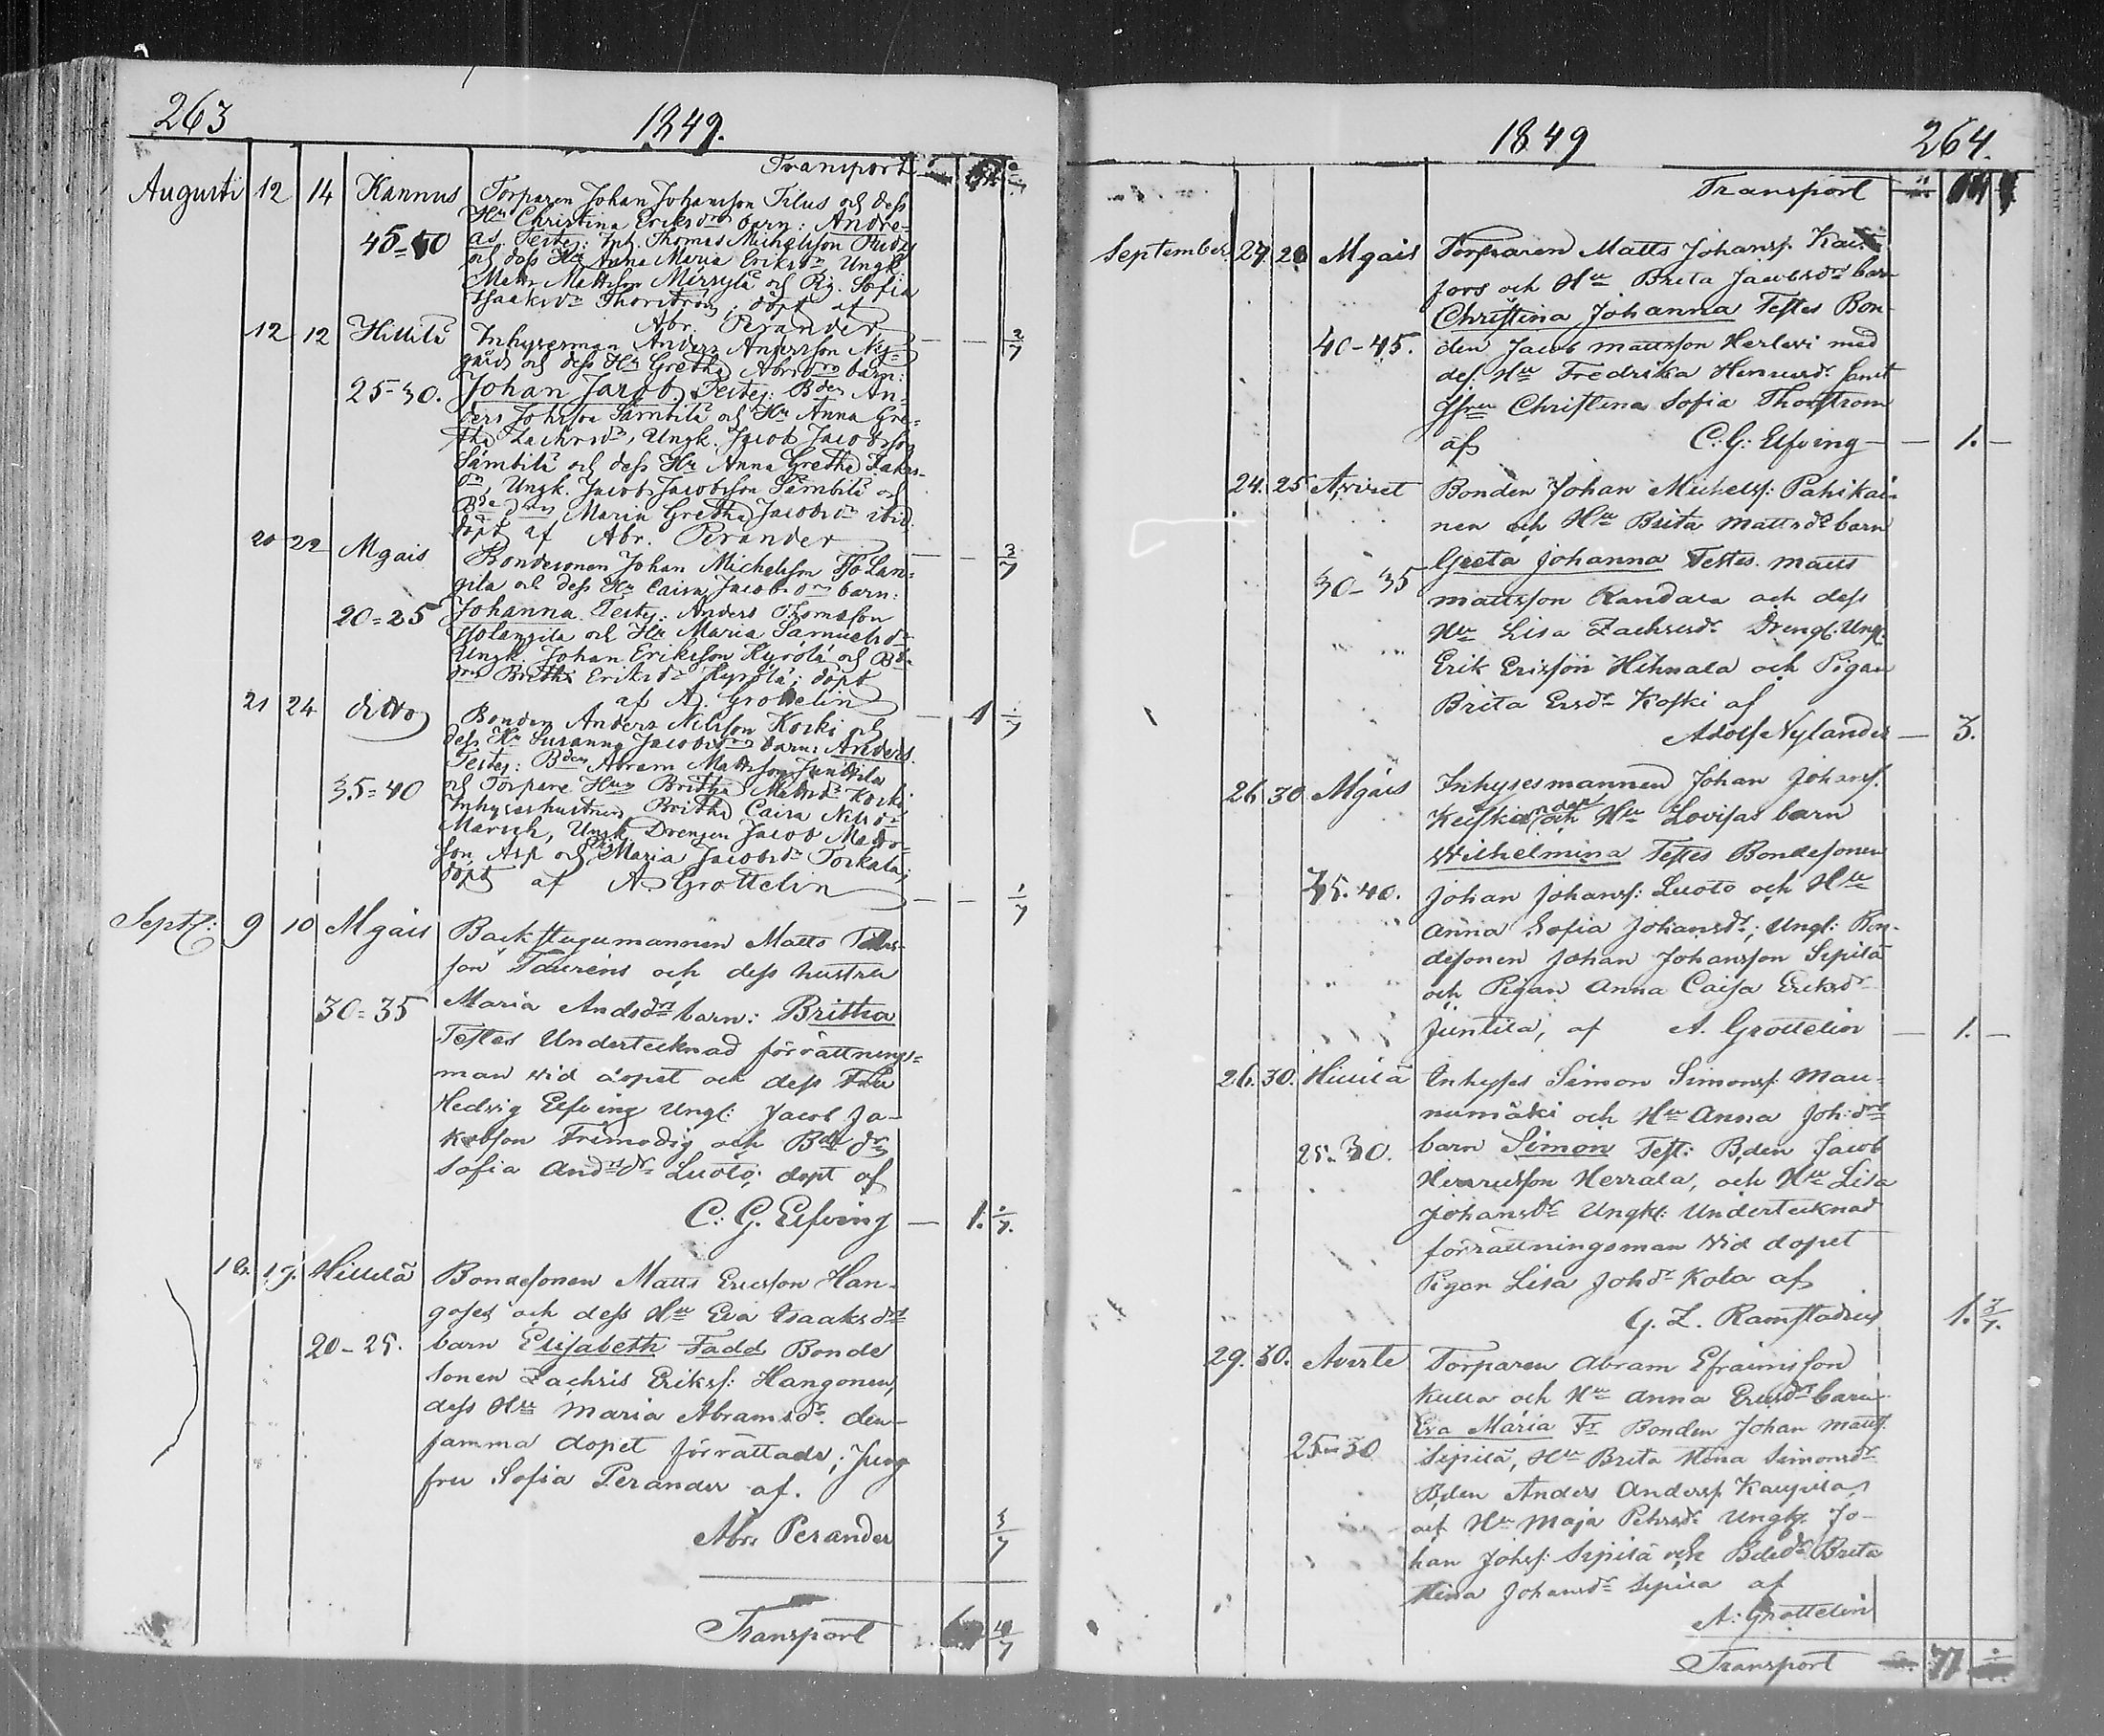 263
1849.
Transport
Augusti 12 14 Kannus Torparen Johan Johansson Tilus och dess
Hu Christina Eriksdrs barn: Andre=
45=50 as. Testes: Inh. Thomas Michelsson
och dess Hu Anna Maria Eriksdr Ungk.
Matts Mattsson och Pig. Sofia
Isaaksdr Thorström; döpt af
Abr. Perander
12 12 Hillilä Inhysesman Anders Andersson Ny=
gård och dess Hu Gretha barn:
25=30. Johan Jacob, Testes: Bden An=
ders Johsson Sämbilä och Hu Anna Gre=
tha Zachrisdr, Ungk. Jacob Jacobsson
Sämbilä och dess Hu Anna Gretha
Ungk. Jacob Jacobsson Sämbilä och
Maria Gretha Jacobsdr ibid.
döpt af Abr. Perander 3/7
20 22 Mgais Bondesonen Johan Michelsson
gila och dess Hu Caisa Jacobsdrs barn:
20=25 Johanna. Testes: Anders Thomasson
Isolangila och Hu Maria Samuelsdr
Ungk. Johan Eriksson Kyrölä och Bde
drn Britha Eriksdr Kyrölä; döpt
af A. Grottelin
21 24 ditto Bonden Anders Nilsson Koski och
dess Hu Susanna Jacobsdrs barn: Anders.
Testes: Bden Abram Mattsson Junttila
35=40 och Torpare Hun Britha Mattsdr Koski,
Inhyseshustrun Britha Caisa Nilsdr
Marsch, Ungk. Drengen Jacob Matts=
son Asp och Maria Jacobsdr Torkala;
döpt af A Grottelin 1/7
Septbr: 9 10 Mgais Backstugumannen Matts
son Taurens och dess hustru
30=35 Maria Andsdrs barn: Britha
Testes Undertecknad förrättnings=
man vid dopet och dess Fru
Hedvig Elfving Ungk: Jacob Ja-
kobson Frimodig och Bde dr
Sofia Andrsdr Luoto; döpt af
C. G. Elfving 1.
19. Hillilä Bondesonen Matts Ericsson Han-
goses och dess Hu Eva Isaaksdrs
20-25. barn Elisabeth Fadd Bonde
sonen Zachris Eriks: Hangonen,
dess Hu Maria Abramsdr den-
samma dopet förrättade; Jung
fru Sofia Perander af.
Abr. Perander 3/7
Transport
1849
264.
Transport
September 24. 28 Mgais Torparen Matts Johans.
fors och Hu Brita Jacobsdrs barn
Christina Johanna Testes Bon-
40-45. den Jacob Mattsson Herlevi med
des Hu Fredrika Henricsdr samt
Jfrun Christina Sofia Thorstrom
af C: G: Elfving 1.
24. 25 Bonden Johan Michels: Pahikai-
nen och Hu Brita Mattsdrs barn
Greta Johanna Testes. Matts
30-35 Mattsson Randara och dess
Hu Lisa Zachrisdr Dreng. Ungk.
Erik Ericsson Hihnala och Pigan
Brita Ersdr Koski af
Adolf Nylander 3.
26 30 Mgais Inhysesmannen Johan Johans.
och Hu Lovisas barn
Wilhelmina Testes Bondesonen
35.40. Johan Johans: Luoto och Hu
Anna Sofia Johansdr; Ungk: Bon-
desonen Johan Johansson Sipilä
och Pigan Anna Caisa Eriksdr
Juntila; af A. Grottelin 1.
26. 30. Hillilä Inhyses Simon Simons. Mau-
numäki och Hu Anna Joh:drs
25-30. barn Simon Test: Bden Jacob
Henricsson Herrala, och Hu Lisa
Johansdr Ungk: Undertecknad
förrättningsman vid dopet
Pigan Lisa Johdr Kola af
G. L. Ramstadius 1.
29. 30. Torparen Abram Efraimsson
Kulla och Hu Anna Ericsdrs barn
Eva Maria Fr Bonden Johan Matts.
25-30 Sipilä, Hu Brita Stina Simonsdr
Bden Anders Anders. Kaupila
och Hu Maja Pehrsdr Ungk. Jo-
han Johs: Sipilä och Bdedr Brita
Stina Johansdr Sipilä af
A: Grottelin
Transport 77